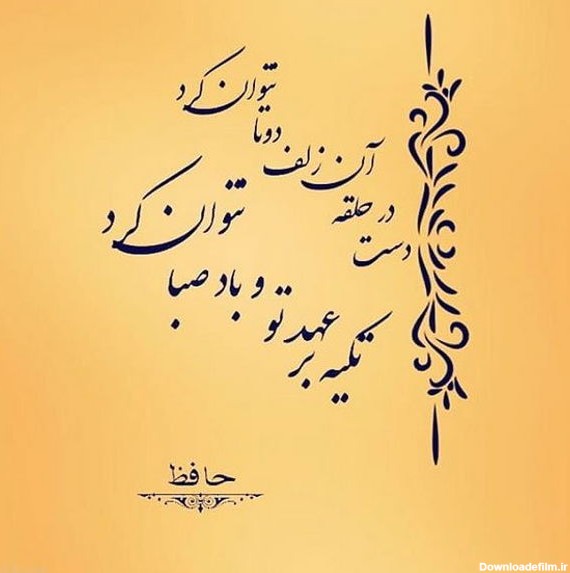 دست در حلقه آن زلف دوتا نتوان کرد
تکیه بر عهد تو و باد صبا نتوان کرد
حافظ
Downloadefilm.ir